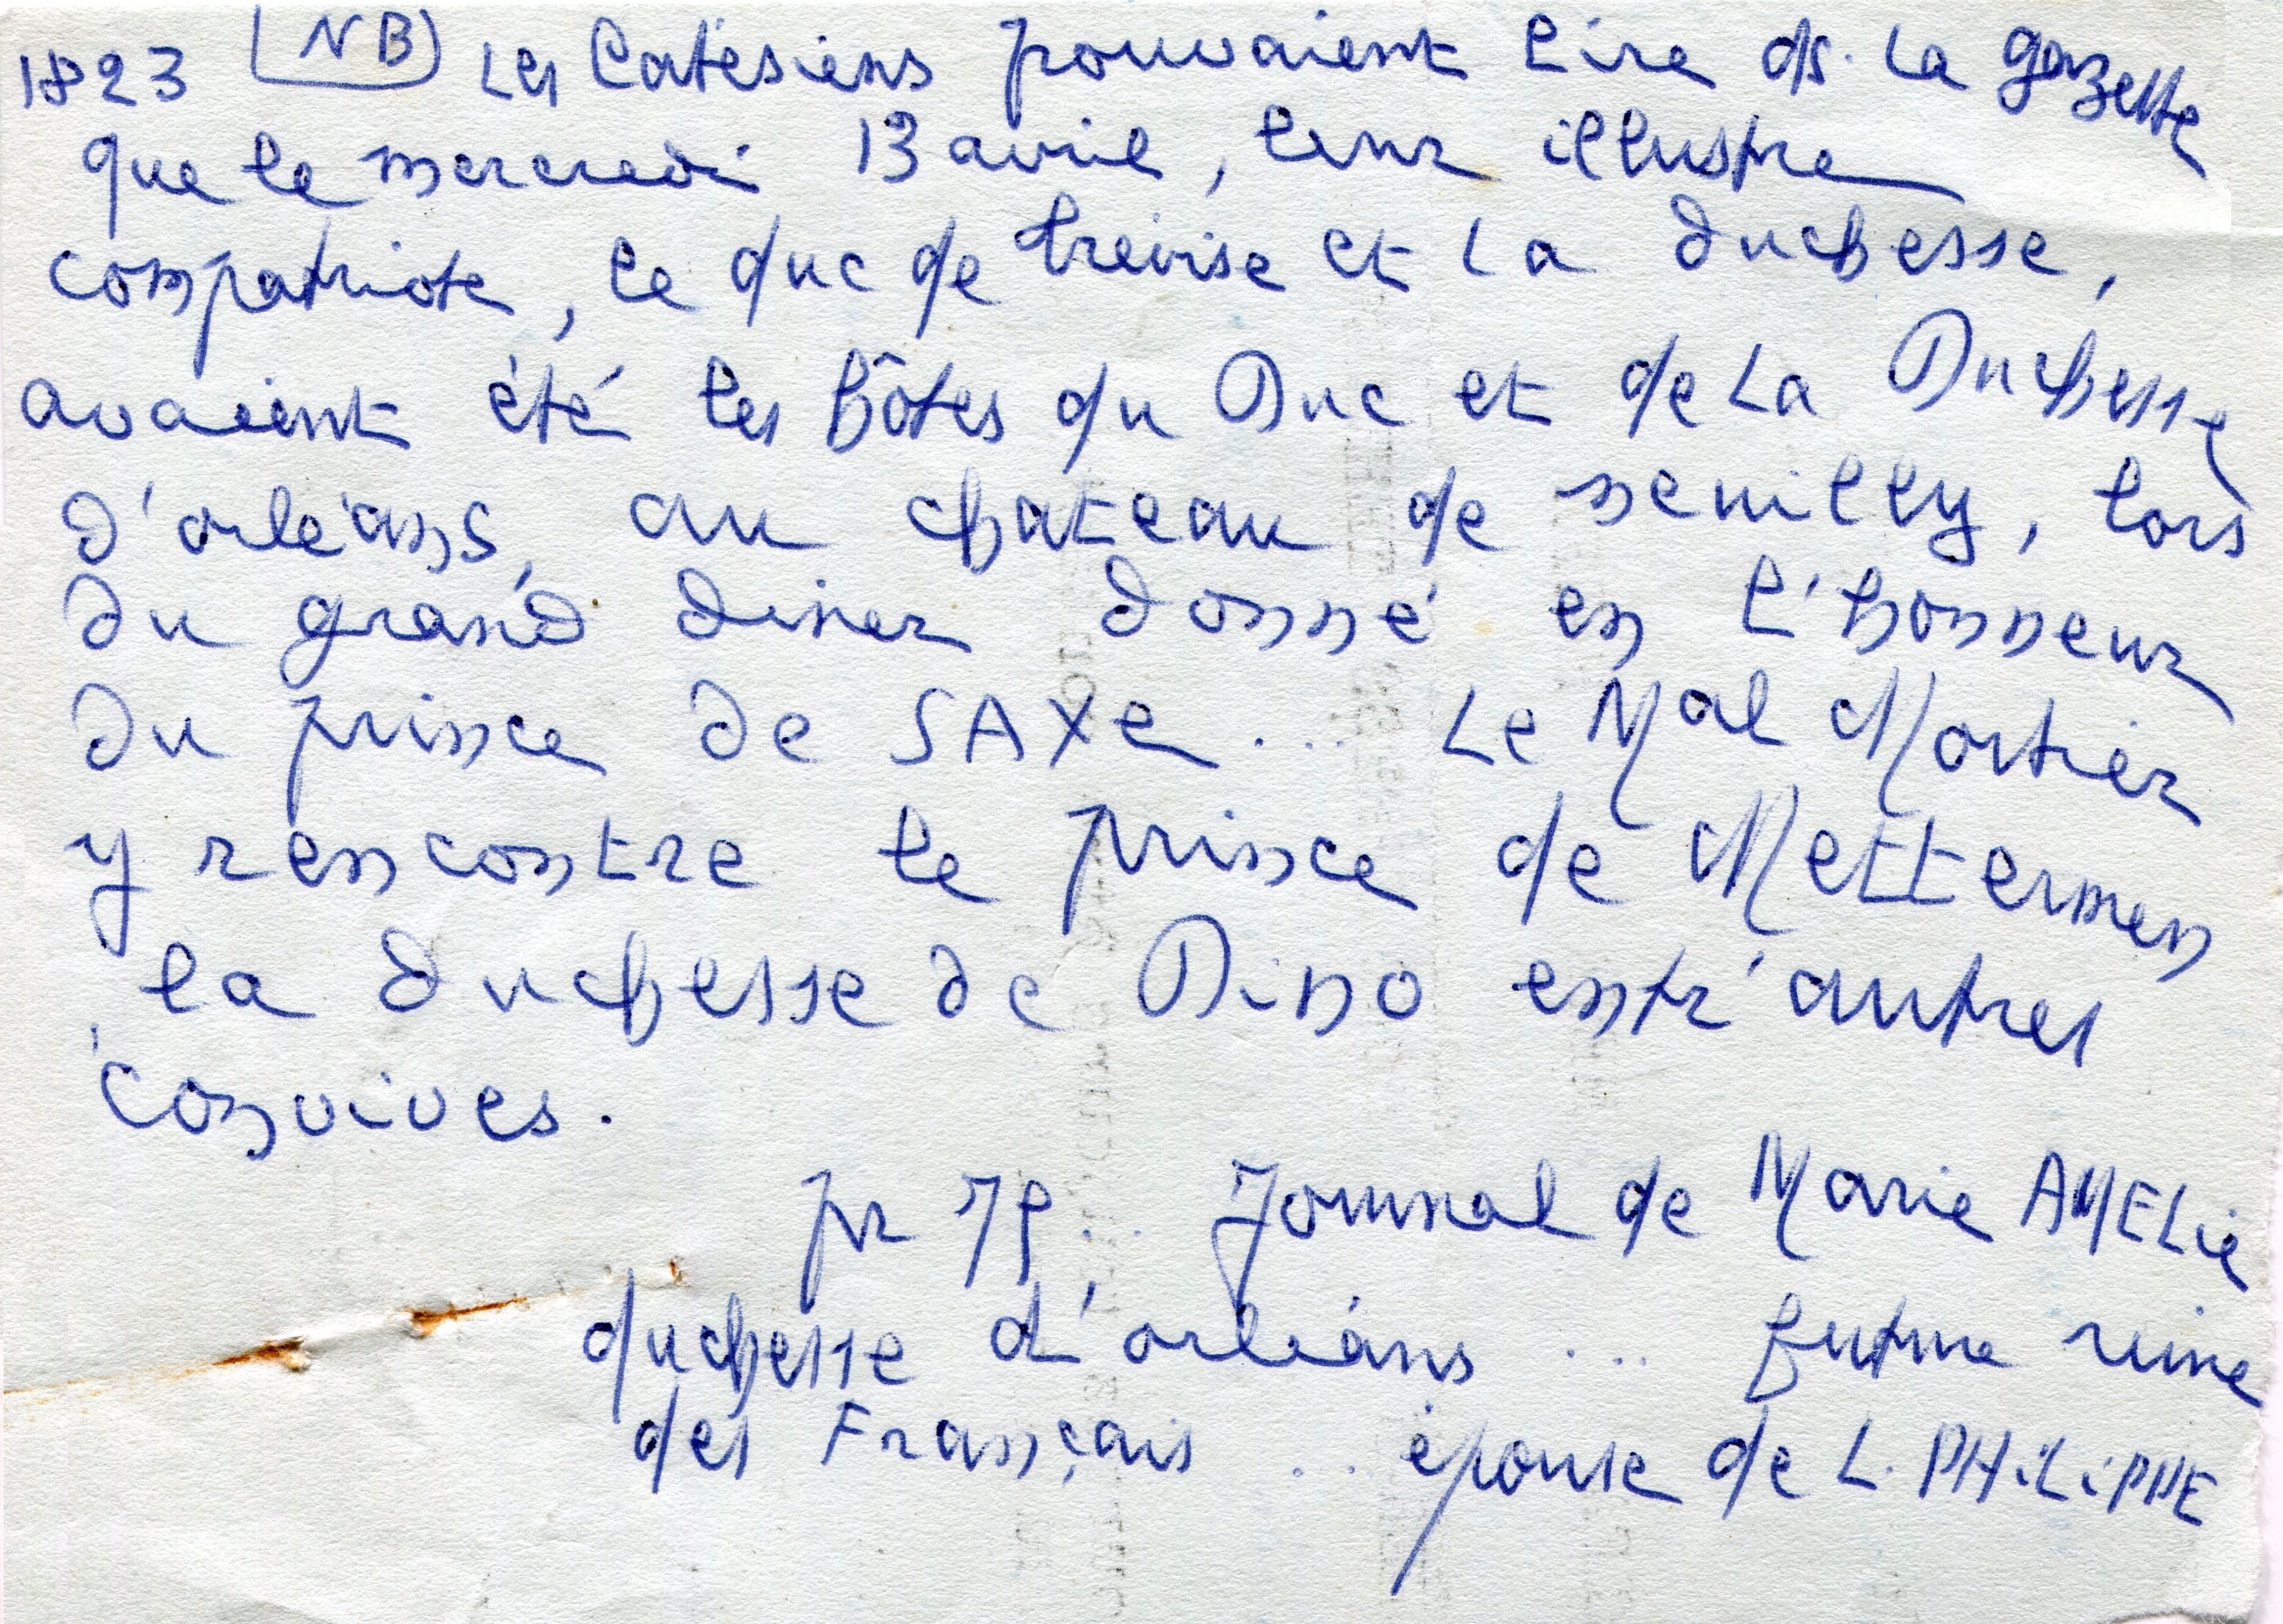 1823 (NB) Les Catésiens pouvaient lire ds. la gazette
que le mercredi 13 avril, leur illustre
compatriote, le duc de trévise et la duchesse,
avaient été les hôtes du Duc et de la Duchesse
d'orléans, au chateau de neuilly, lors
du grand diner donné en l'honneur
du prince de SAXe ... Le Mal Mortier
y rencontre le prince de Mettermen
, la duchesse de Dino entr'autres
convives.
pr Journal de Marie AMELie
duchesse d'orléans ... future reine
des Français ... épouse de L. PHiLiPPE